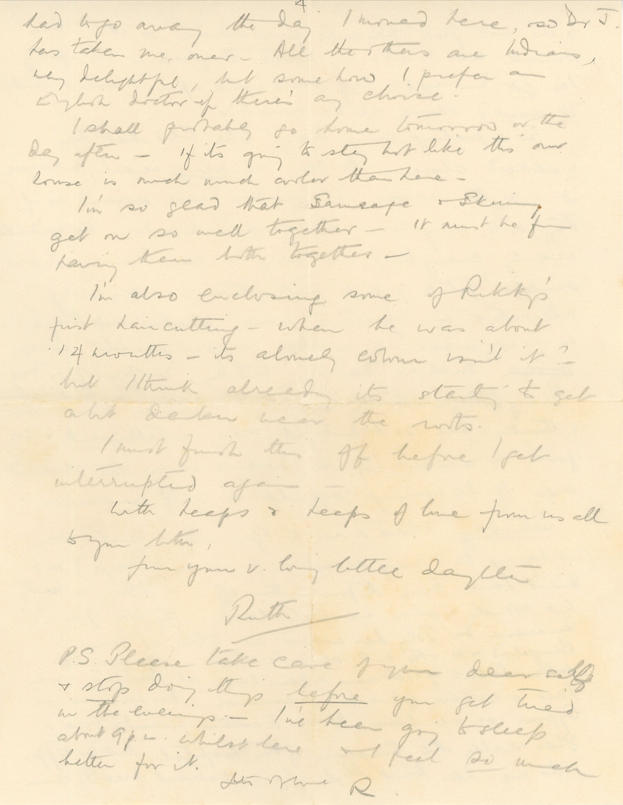 4
had to go away the day I moved here, so Dr J.
has taken me over - All the others are Indians,
very delightful, but somehow I prefer an
English doctor if there's any choice.
I shall probably go home tomorrow or the
day after - If its going to stay hot like this our
house is much much cooler than here -
I'm so glad that Sausage & Skinny
get on so well together - It must be fun
having them both together -
I'm also enclosing some of Rikky's
first haircutting - when he was about
14 months - its a lovely colour isn't it? -
but I think already its starting to get
a bit darker near the roots.
I must finish this off before I get
interrupted again -
With heaps & heaps of love from us all
to you both,
from your v. loving little daughter
Ruth
P.S. Please take care of your dear selfs
& stop doing things before you get tired
in the evenings - I've been going to sleep
about 9 p.m. whilst here & I feel so much
better for it.
Lots of love R